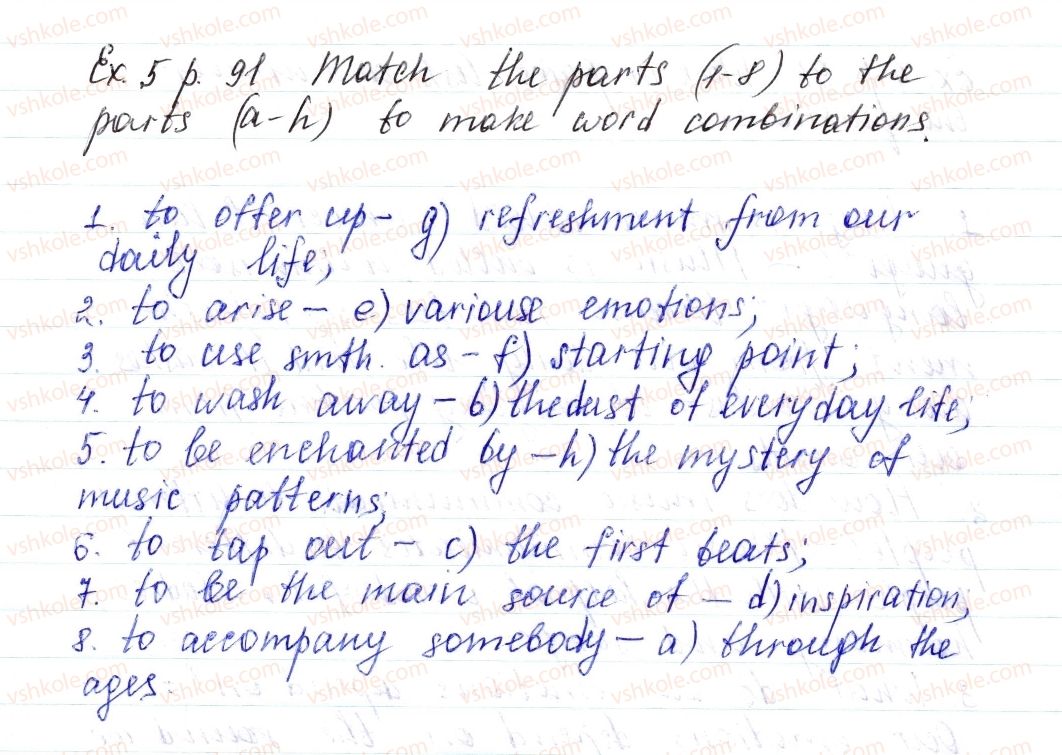 Ex. 5 p. 91 Match the parts (1-8) to the
parts (a-h) to make word combinations.
1. to offer up - g) refreshment from our
daily life;
2. to arise - e) variouse emotions;
3. to use smth. as - f) starting point;
4. to wash away - b) the dust of everyday life;
5. to be enchanted by - h) the mystery of
music patterns;
6. to tap out - c) the first beats;
7. to be the main source of - d) inspiration;
8. to accompany somebody - a) through the
ages.
vshkole.com